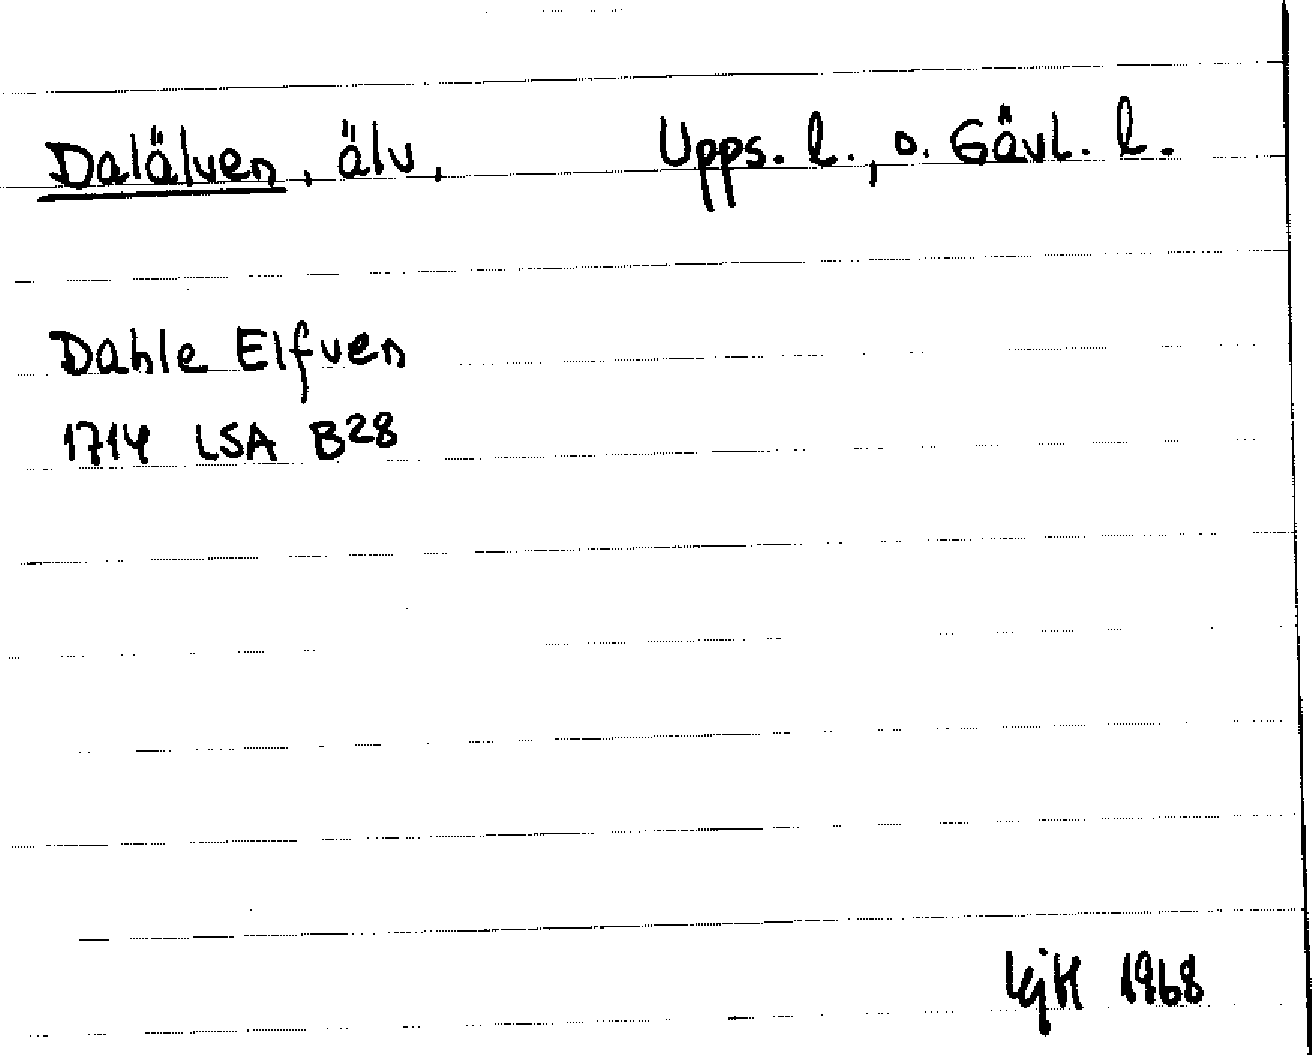 Dalälven, älv, Upps. l., o. Gävl. l.
Dahle Elfven
1714 LSA B28
KjH 1968